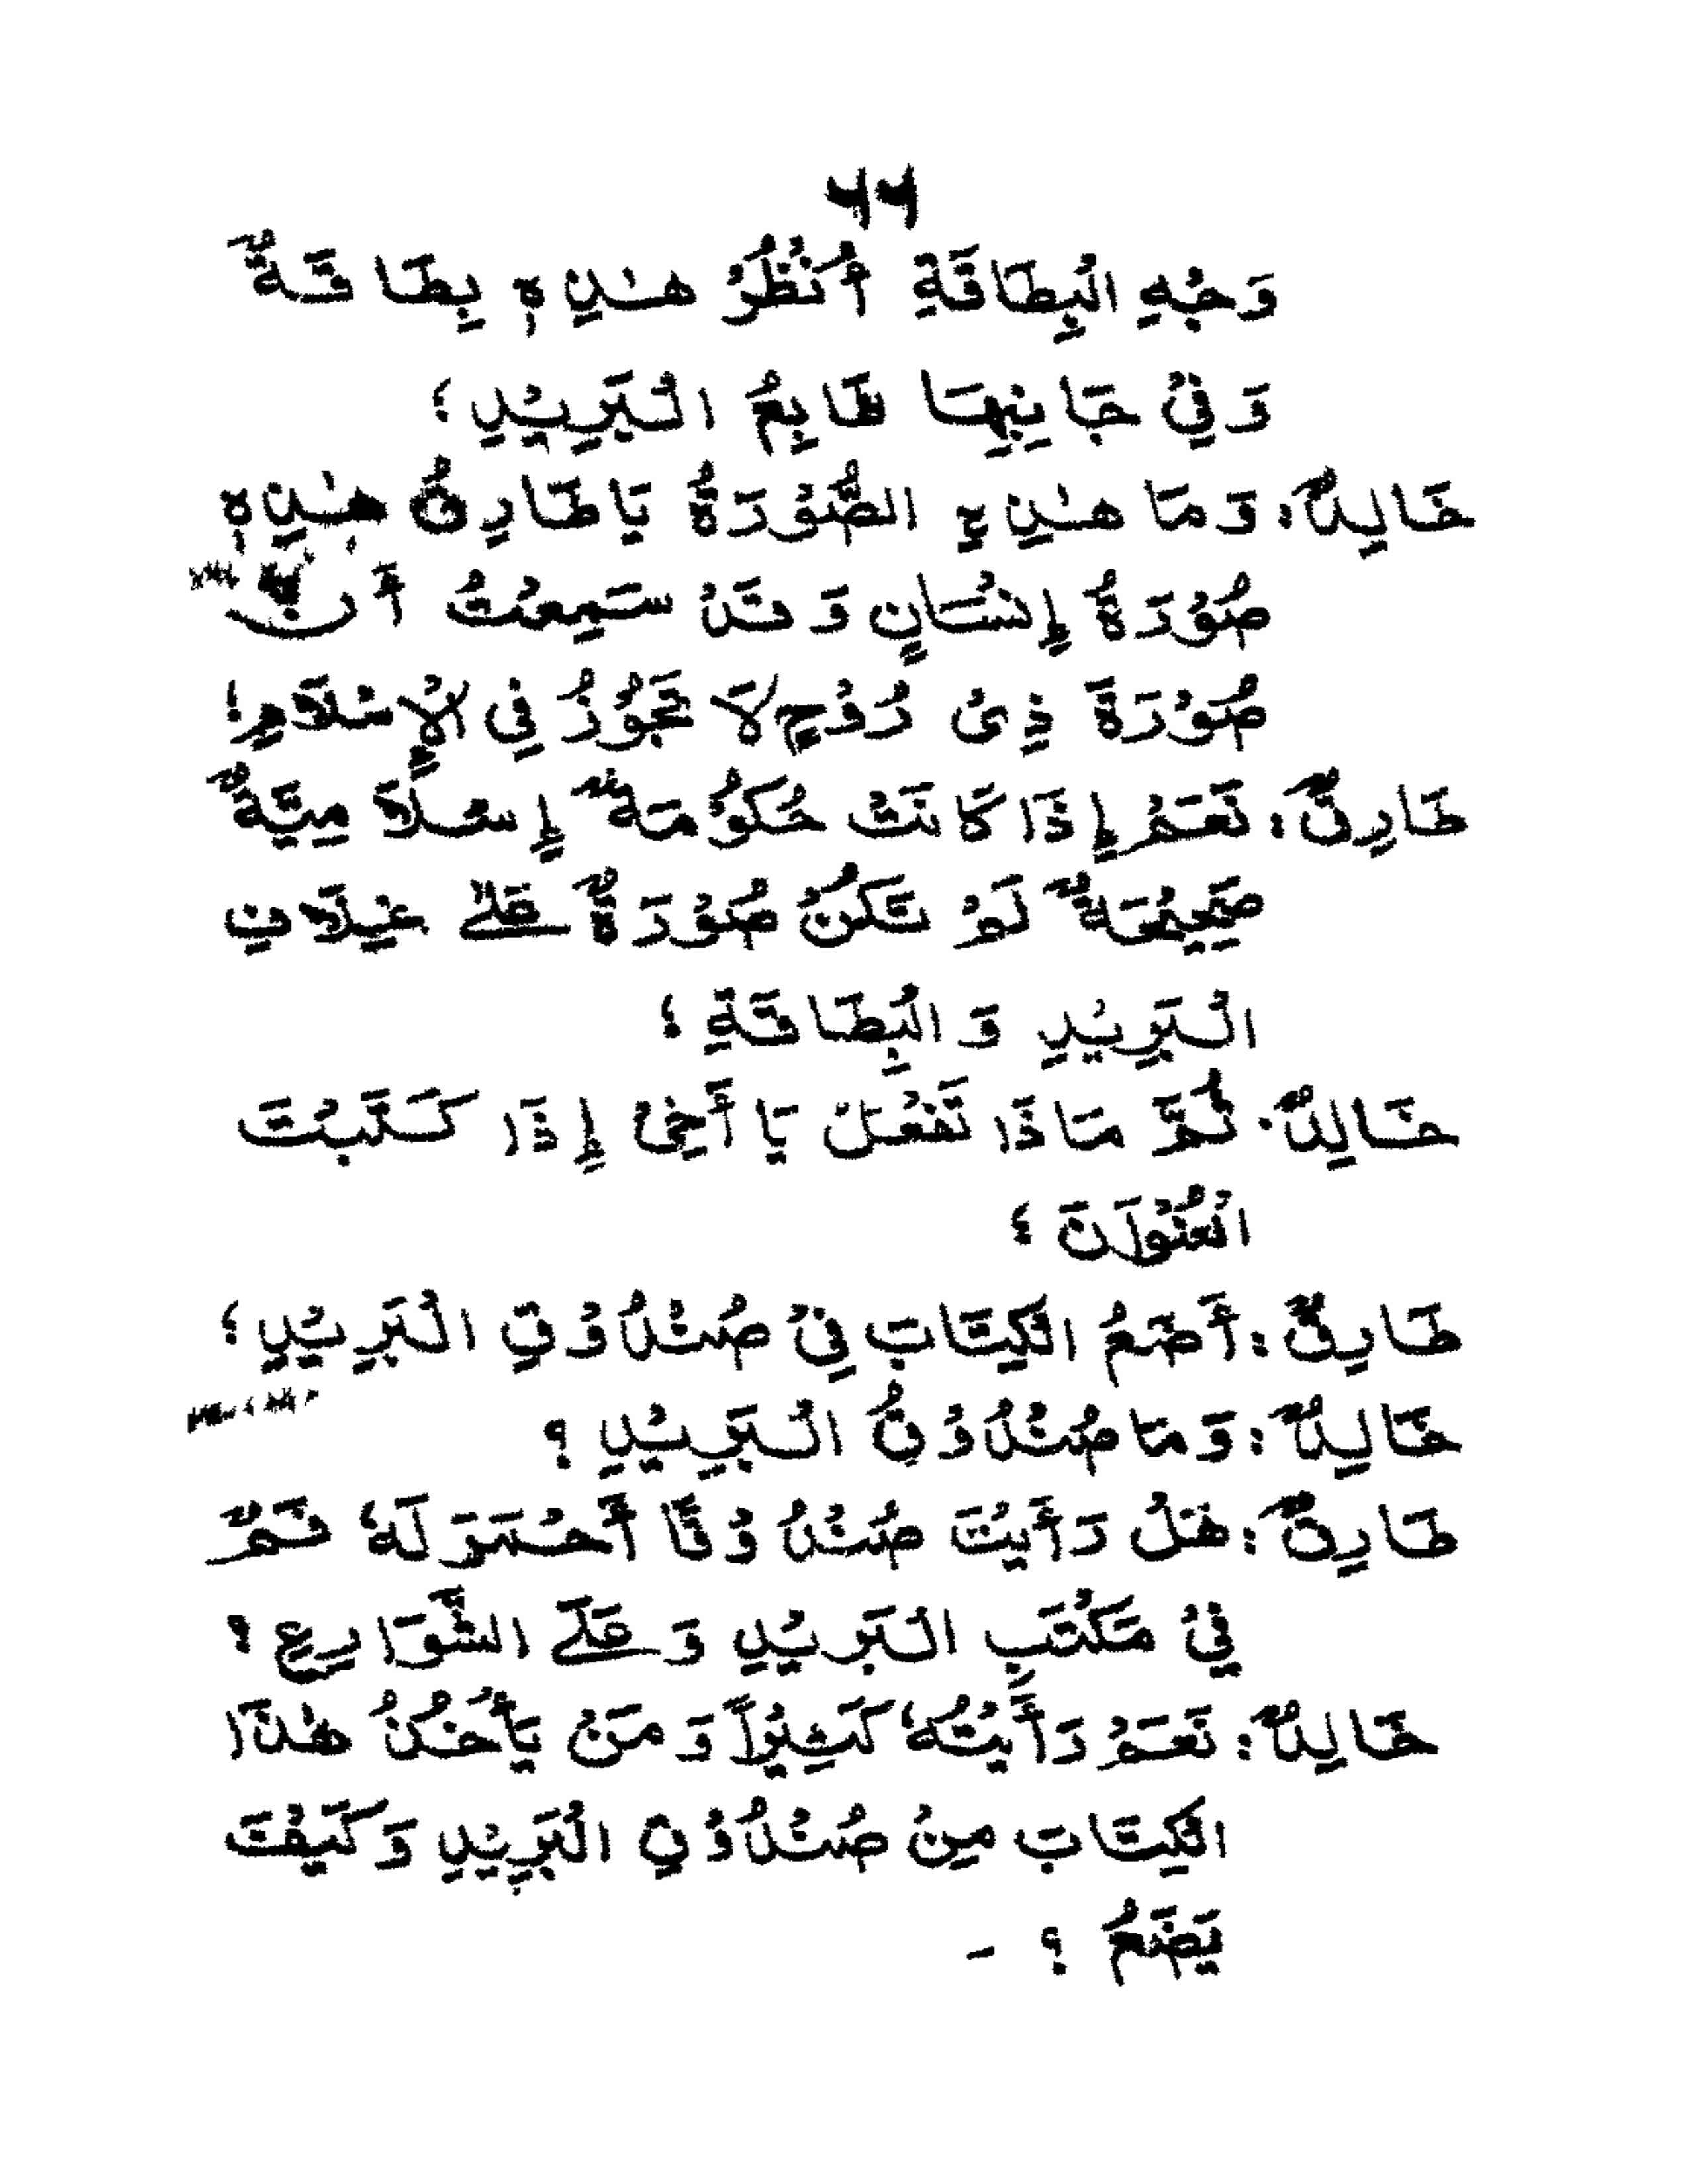 ۶۶
وَجْهِ الْبِطَاقَةِ أُنْظُرْ هٰذِهٖ بِطَاقَةٌ
وَفِيْ جَانِبِهَا طَابِعُ الْبَرِيْدِ؛
خَالِدٌ: وَمَا هٰذِهِ الصُّوْرَةُ يَا طَارِقُ هٰذِهٖ
صُوْرَةُ إِنْسَانٍ وَقَدْ سَمِعْتُ أَنَّ
صُوْرَةَ ذِىْ رُوْحٍ لَا تَجُوْزُ فِي الْإِسْلَامِ؛
طَارِقٌ: نَعَمْ إِذَا كَانَتْ حُكُوْمَةٌ إِسْلَامِيَّةٌ
صَحِيْحَةٌ لَمْ تَكُنْ صُوْرَةٌ عَلٰے غِلَافِ
الْبَرِيْدِ وَالْبِطَاقَةِ؛
خَالِدٌ: ثُمَّ مَاذَا تَفْعَلُ يَا أَخِيْ إِذَا كَتَبْتَ
الْعُنْوَانَ؛
طَارِقٌ: أَضَعُ الْكِتَابَ فِيْ صُنْدُوْقِ الْبَرِيْدِ؛
خَالِدٌ: وَمَا صُنْدُوْقُ الْبَرِيْدِ؟
طَارِقٌ: هَلْ رَأَيْتَ صُنْدُوْقًا أَحْمَرَ لَهٗ فَمٌ
فِيْ مَكْتَبِ الْبَرِيْدِ وَعَلَے الشَّوَارِعِ؟
خَالِدٌ: نَعَمْ رَأَيْتُهٗ كَثِيْرًا وَمَنْ يَأْخُذُ هٰذَا
الْكِتَابَ مِنْ صُنْدُوْقِ الْبَرِيْدِ وَكَيْفَ
يَضَعُ؟ -